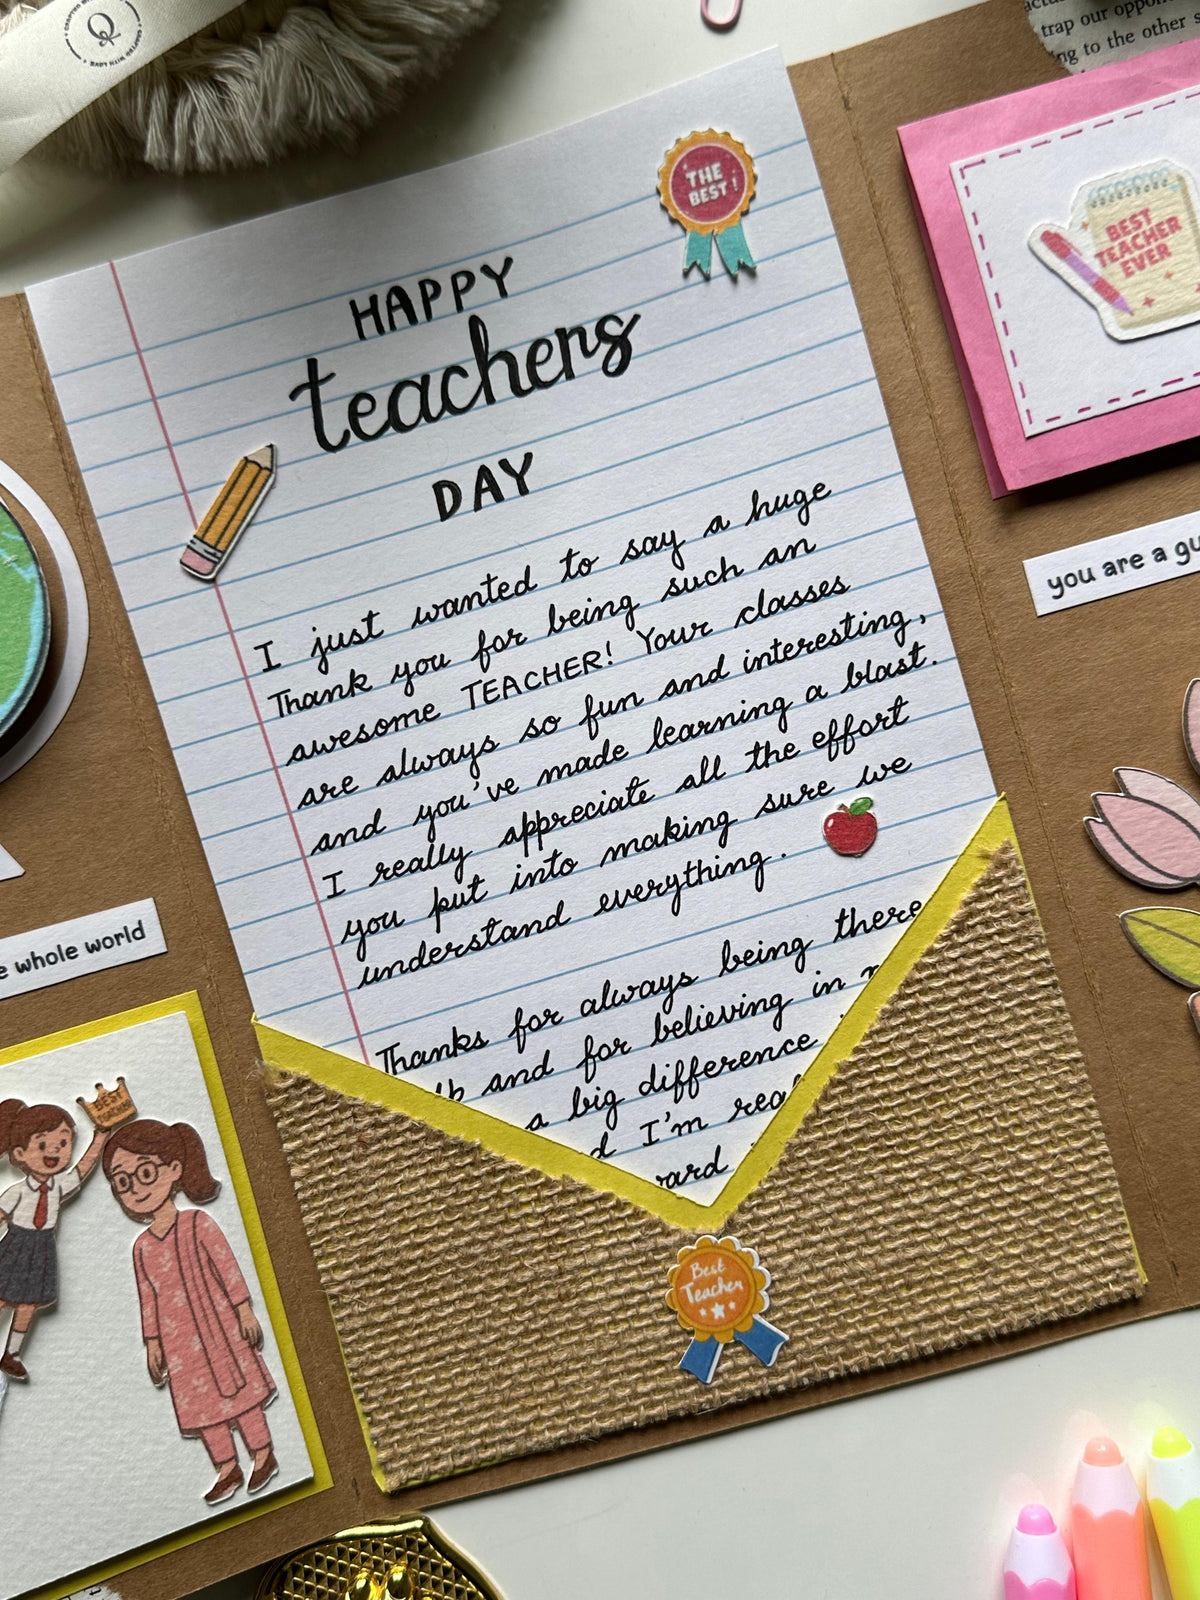 CRAFTED WITH LOVE
Q
trap our
to the other
THE
BEST!
HAPPY
teachers
DAY
BEST
TEACHER
EVER
I just wanted to say a huge
Thank you for being such an
awesome TEACHER! Your classes
are always so fun and interesting,
and you've made learning a blast.
I really appreciate all the effort
you put into making sure we
understand everything.
Thanks for always being there
and for believing in
a big difference
I'm
you are a
whole world
BEST
Best
Teacher